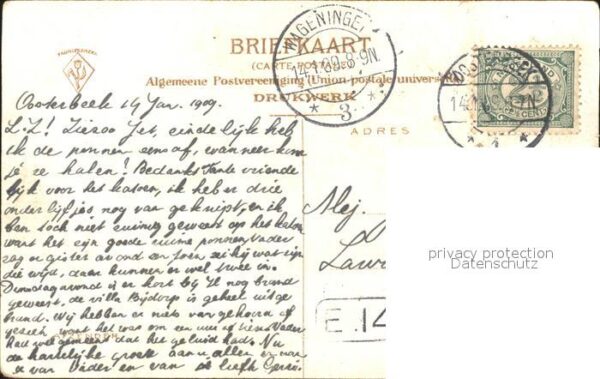 BRIEFKAART
(CARTE POSTALE)
Algemeene Postvereeniging (Union postale universelle)
DRUKWERK
ADRES
WAGENINGEN
14.1.09.8-9N.
3
OOSTERBEEK
14.1.09. 1N.
NEDERLAND
2½
CENT
Oosterbeek 14 Jan. 1909.
L.Z! Ziezoo Jet, eindelijk heb
ik de ponnen eens af, wanneer kom
je ze halen! Bedank Tante vriende
lijk voor het katoen, ik heb er drie
onderlijfjes nog van geknipt, en ik
ben toch niet zuinig geweest op het katoen
want het zijn goede ruime ponnen, Vader
zag er gister avond een en zei hij wat zijn
die wijd, daar kunnen er wel twee in.
Dinsdagavond is er kort bij U nog brand
geweest, de villa Bijdorp is geheel uitge
brand. Wij hebben er niets van gehoord of
gezien, want het was om een uur of tien. Vader
had wel gemeend dat het geluid had. Nu
de hartelijke groeten aan U allen en van
Vader en van je liefh
Mej.
Laur
E.14
privacy protection
Datenschutz